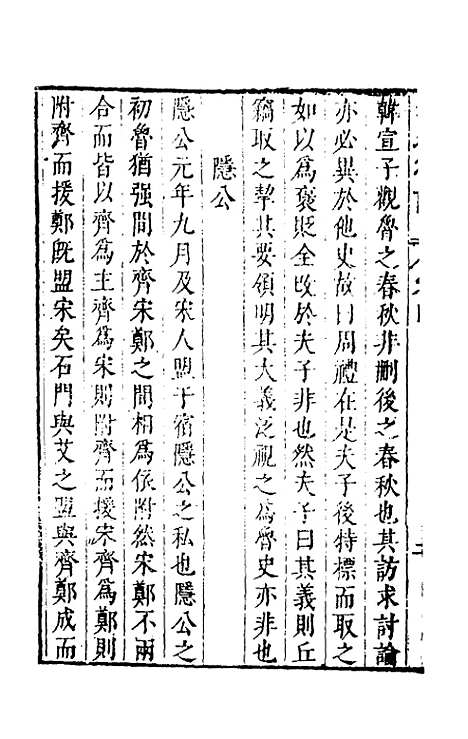 韓宣子觀魯之春秋非刪後之春秋也其訪求討論
亦必異於他史故曰周禮在是夫子後特標而取之
如以為褒貶全改於夫子非也然夫子曰其義則丘
竊取之挈其要領明其大義泛視之為魯史亦非也
隱公
隱公元年九月及宋人盟于宿隱公之私也隱公之
初魯猶强間於齊宋鄭之間相為依附然宋鄭不兩
合而皆以齊為主齊為宋則附齊而援宋齊為鄭則
附齊而援鄭旣盟宋矣石門與艾之盟與齊鄭成而